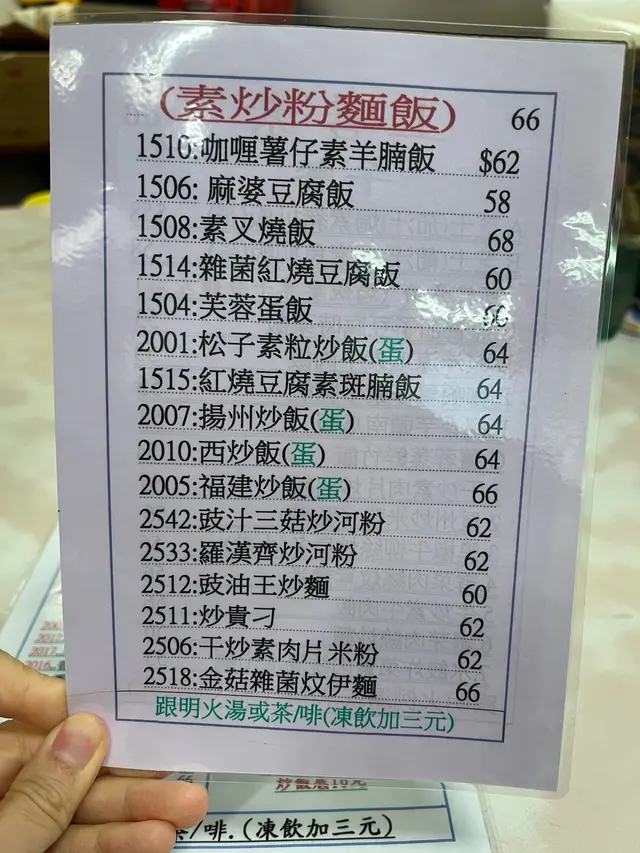 (素炒粉麵飯) 66
1510:咖喱薯仔素羊腩飯 $62
1506: 麻婆豆腐飯 58
1508:素叉燒飯 68
1514:雜菌紅燒豆腐飯 60
1504:芙蓉蛋飯
2001:松子素粒炒飯(蛋) 64
1515:紅燒豆腐素斑腩飯 64
2007:揚州炒飯(蛋) 64
2010:西炒飯(蛋) 64
2005:福建炒飯(蛋) 66
2542:豉汁三菇炒河粉 62
2533:羅漢齊炒河粉 62
2512:豉油王炒麵 60
2511:炒貴刁 62
2506:干炒素肉片米粉 62
2518:金菇雜菌炆伊麵 66
跟明火湯或茶/啡(凍飲加三元)
/啡.(凍飲加三元)